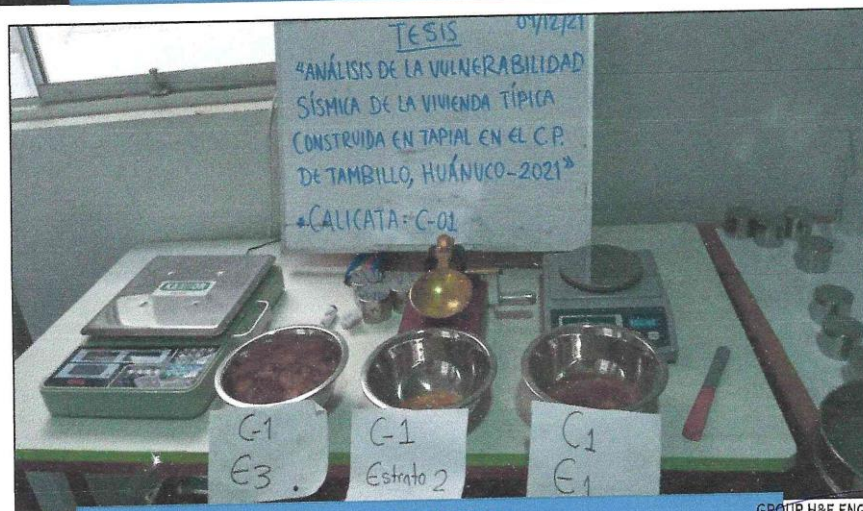 TESIS 09/12/21
"ANÁLISIS DE LA VULNERABILIDAD
SÍSMICA DE LA VIVIENDA TÍPICA
CONSTRUIDA EN TAPIAL EN EL C.P.
DE TAMBILLO, HUÁNUCO-2021"
•CALICATA: C-01
C-1
E3.
C-1
Estrato 2
C1
E1
GROUP H&E ENG